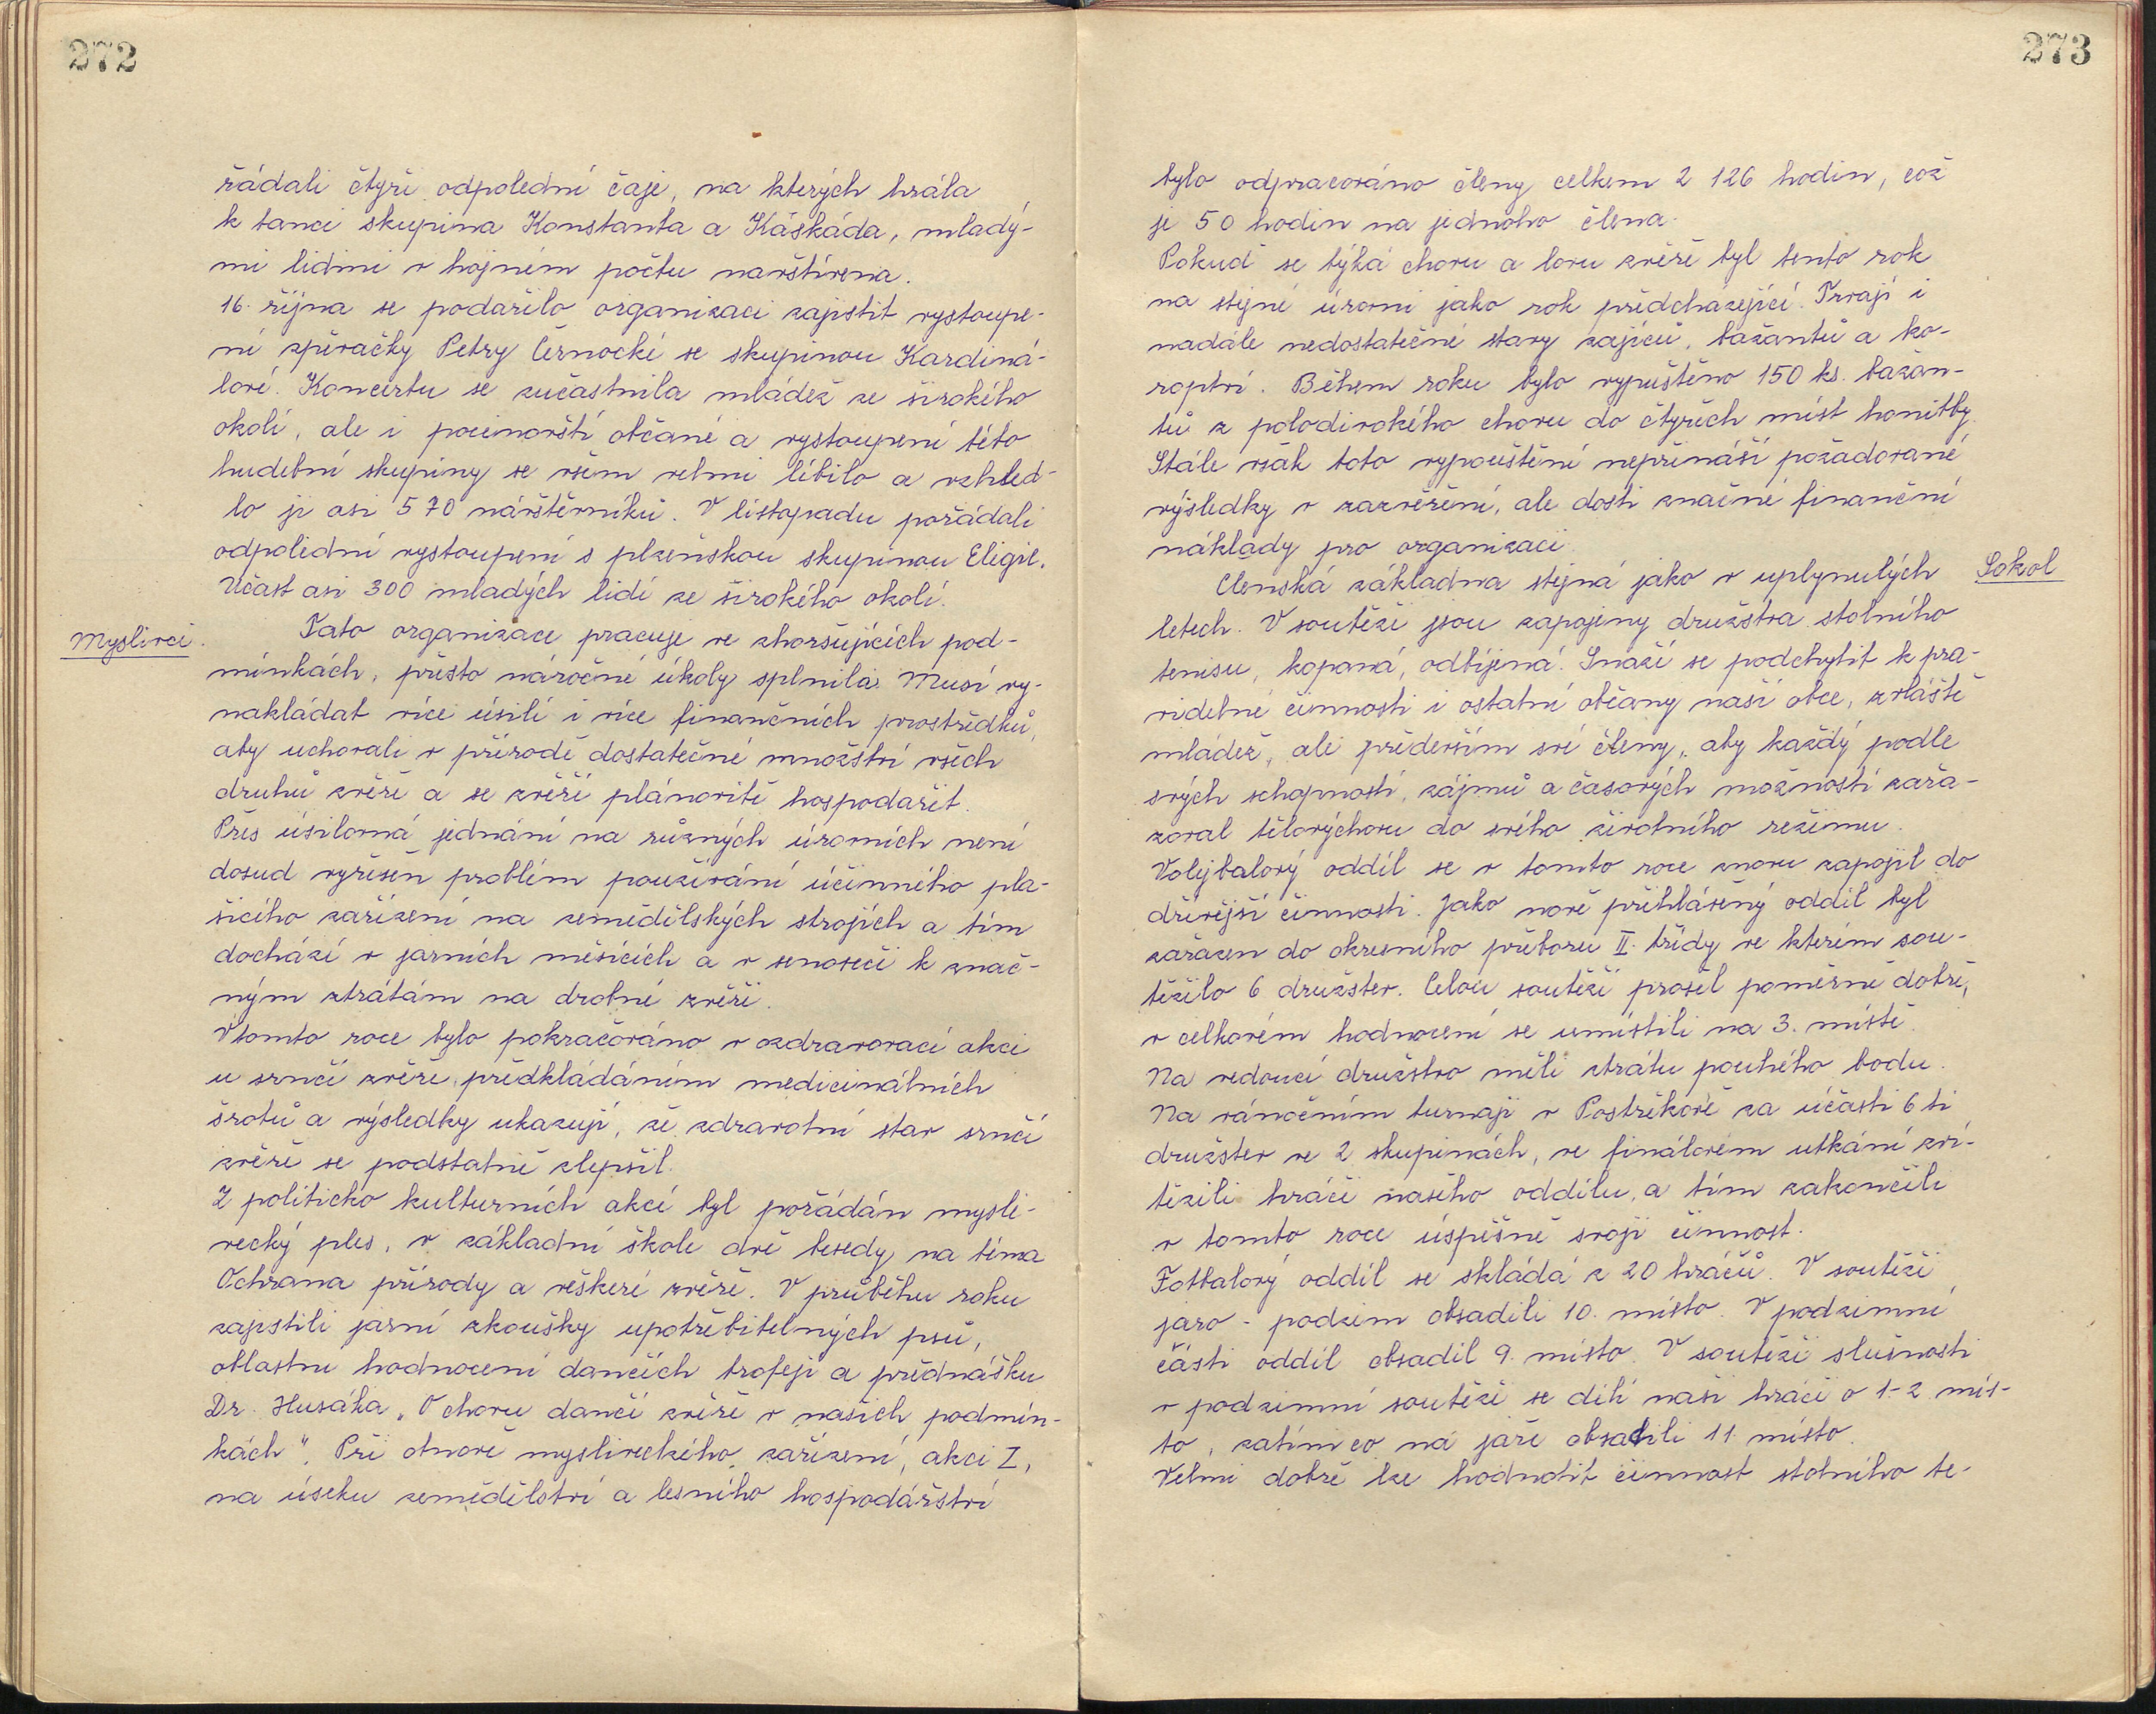 272
řádali čtyři odpolední čaje, na kterých hrála
k tanci skupina Konstanta a Káskáda, mladý-
mi lidmi v hojném počtu navštívena.
16. října se podařilo organizaci zajistit vystoupe-
ní zpěvačky Petry Černocké se skupinou Kardiná-
lové. Koncertu se zúčastnila mládež ze širokého
okolí, ale i pocinovští občané a vystoupení této
hudební skupiny se všem velmi líbilo a vzhléd-
lo ji asi 570 návštěvníků. V listopadu pořádali
odpolední vystoupení s plzeňskou skupinou Eligie.
Účast asi 300 mladých lidí ze širokého okolí.
Myslivci.
Tato organizace pracuje ve zhoršujících pod-
mínkách, přesto náročné úkoly splnila. Musí vy-
nakládat více úsilí i více finančních prostředků,
aby uchovali v přírodě dostatečné množství všech
druhů zvěře a se zvěří plánovitě hospodařit.
Přes úsilovná jednání na různých úrovních není
dosud vyřešen problém používání účinného pla-
šícího zařízení na zemědělských strojích a tím
dochází v jarních měsících a v senoseči k znač-
ným ztrátám na drobné zvěři.
V tomto roce bylo pokračováno v ozdravovací akci
u srnčí zvěře, předkládáním medicinálních
šrotů a výsledky ukazují, že zdravotní stav srnčí
zvěře se podstatně zlepšil.
Z politicko kulturních akcí byl pořádán mysli-
vecký ples, v základní škole dvě besedy na téma
Ochrana přírody a veškeré zvěře. V průběhu roku
zajistili jarní zkoušky upotřebitelných psů,
oblastní hodnocení dančích trofejí a přednášku
Dr. Husáka „O chovu dančí zvěře v našich podmín-
kách". Při obnově mysliveckého zařízení, akci Z,
na úseku zemědělství a lesního hospodářství
273
bylo odpracováno členy celkem 2 126 hodin, což
je 50 hodin na jednoho člena.
Pokud se týká chovu a lovu zvěře byl tento rok
na stejné úrovni jako rok předcházející. Trvají i
nadále nedostatečné stavy zajíců, bažantů a ko-
roptví. Během roku bylo vypuštěno 150 ks. bažan-
tů z polodivokého chovu do čtyřech míst honitby.
Stále však toto vypouštění nepřináší požadované
výsledky v zazvěření, ale dosti značné finanční
náklady pro organizaci.
Sokol
Členská základna stejná jako v uplynulých
letech. V soutěži jsou zapojeny družstva stolního
tenisu, kopaná, odbíjená. Snaží se podchytit k pra-
videlné činnosti i ostatní občany naší obce, zvláště
mládež, ale především své členy, aby každý podle
svých schopností, zájmů a časových možností zařa-
zoval tělovýchovu do svého životního režimu.
Volejbalový oddíl se v tomto roce znovu zapojil do
dřívější činnosti. Jako nově přihlášený oddíl byl
zařazen do okresního přeboru II. třídy ve kterém sou-
těžilo 6 družstev. Celou soutěží prošel poměrně dobře,
v celkovém hodnocení se umístili na 3. místě.
Na vedoucí družstvo měli ztrátu pouhého bodu.
Na vánočním turnaji v Postřekově za účasti 6 ti
družstev ve 2 skupinách, ve finálovém utkání zví-
tězili hráči našeho oddílu, a tím zakončili
v tomto roce úspěšně svoji činnost.
Fotbalový oddíl se skládá z 20 hráčů. V soutěži
jaro - podzim obsadili 10. místo. V podzimní
části oddíl obsadil 9. místo. V soutěži slušnosti
v podzimní soutěži se dělí naši hráči o 1-2 mís-
to, zatím co na jaře obsadili 11. místo.
Velmi dobře lze hodnotit činnost stolního te-